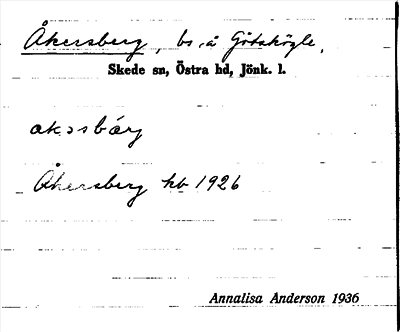 Åkersberg, bs. å Götskögle,
Skede sn, Östra hd, Jönk. l.
akɔsbærj
Åkersberg kb 1926
Annalisa Anderson 1936